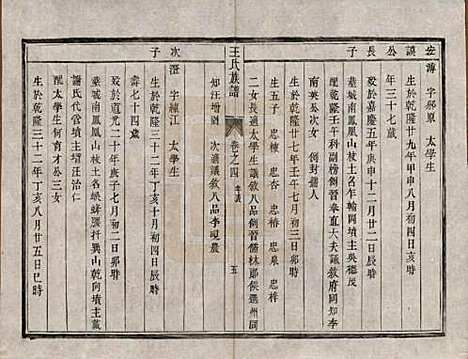 宏謨公長子
諱 字郁原 太學生
生於乾隆廿九年甲申八月初四日亥時
年三十七歲
歿於嘉慶五年庚申十二月廿二日辰時
墓城南鳳凰山杖土名午輪岡墳主吳穗茂
配乾隆壬午副榜例晉奉直大夫議敘府同知李
南英公次女 例封孺人
生於乾隆廿七年壬午七月初三日卯時
生五子 忠棟 忠杏 忠椿 忠泉 忠梓
二女長適太學生議敘八品例晉儒林郎候選州同
知汪增 次適議敘八品李硯農
王氏族譜
卷之四
五
次子
澄 字練江 太學生
生於乾隆三十二年丁亥十月初四日辰時
歿於道光二十年庚子七月初二日卯時
壽七十四歲
墓城南鳳凰山杖土名
山乾向墳主戴
謝氏代管墳主汪治仁
配太學生何育占公三女
生於乾隆三十二年丁亥八月廿五日巳時